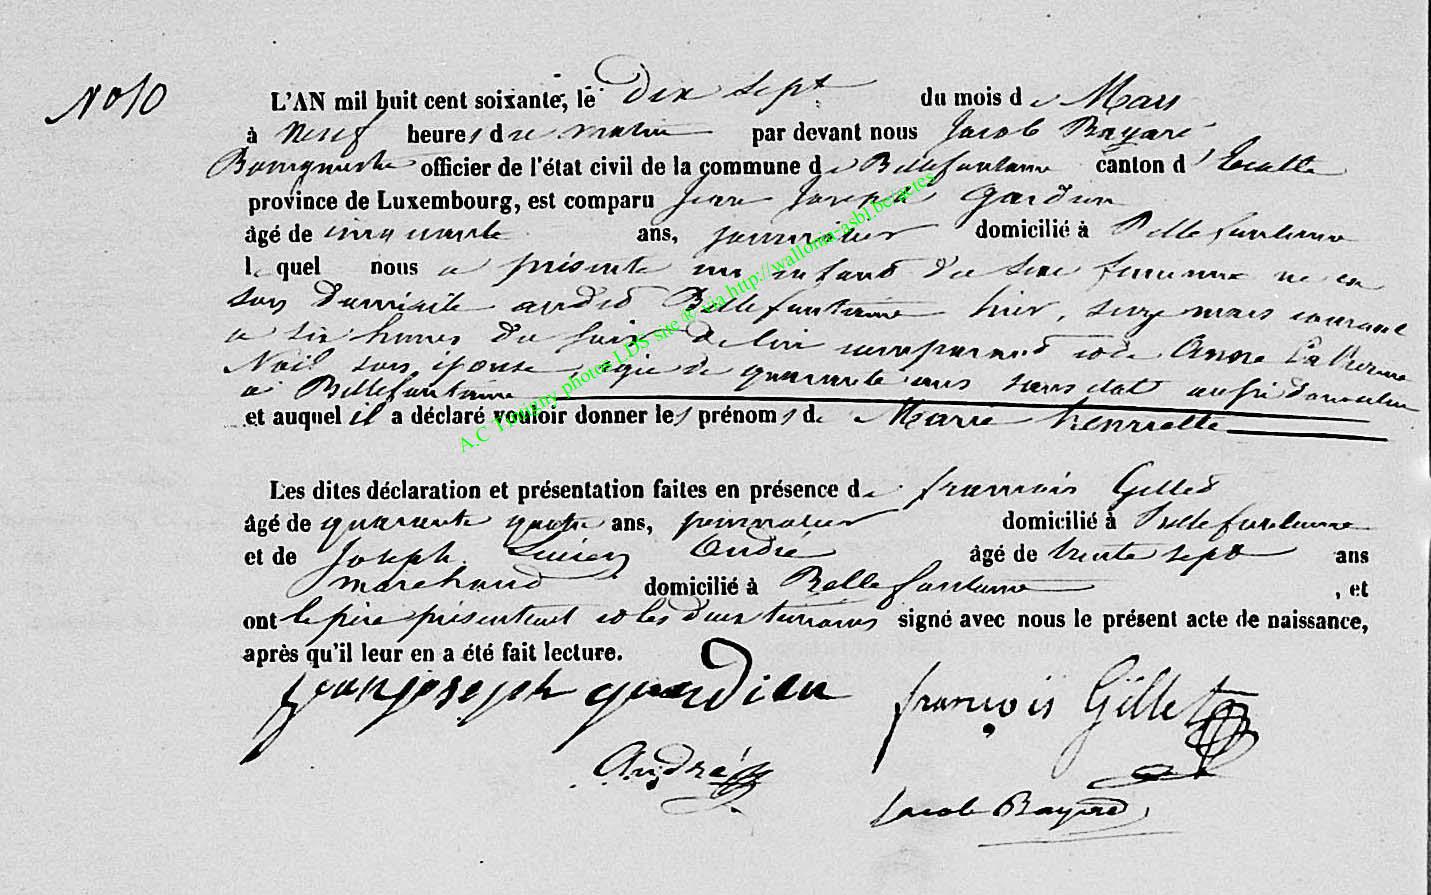 No 10
L'AN mil huit cent soixante, le dix sept du mois de Mars
à neuf heures du matin par devant nous Jacob Bayard
Bourgmestre officier de l'état civil de la commune de Bellefontaine canton d'Etalle
province de Luxembourg, est comparu Jean Joseph Gardien
âgé de cinquante ans, journalier domicilié à Bellefontaine
lequel nous a présenté un enfant du sexe féminin né en
son domicile audit Bellefontaine hier, seize mars courant
a six heures du soir de lui comparant et de Anne Catherine
Noël son épouse, agée de quarante ans sans état aussi domiciliée
a Bellefontaine
et auquel il a déclaré vouloir donner les prénoms de Marie henriette
Les dites déclaration et présentation faites en présence de francois Gillet
âgé de quarante quatre ans, journalier domicilié à Bellefontaine
et de Joseph Lucien André âgé de trente sept ans
marchand domicilié à Bellefontaine , et
ont le père présentant et les deux témoins signé avec nous le présent acte de naissance,
après qu'il leur en a été fait lecture.
jean joseph guardien françois Gillet
André
Jacob Bayard
A.C Tintigny photos LDS site ® via http://wallonia-asbl.be/actes